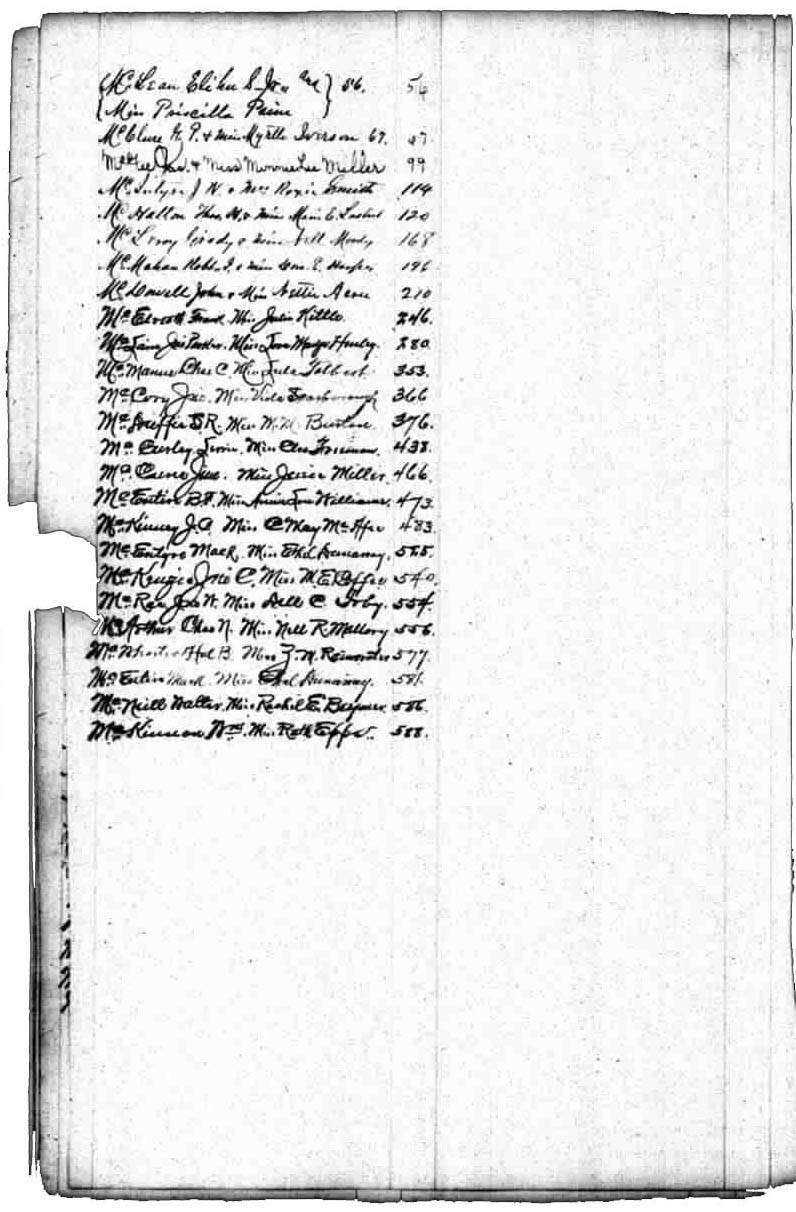 McLean Elihu S. Jr. and } 56. 56
Miss Priscilla Paine
McClure G. P. & Miss Myrtle Iverson 67. 67.
McKee Jas. & Miss Minnie Lee Miller 99
J. W. & Mrs Roxie Smith 114
McHatton Thos. H. & Miss Marie C. 120
McLeroy Grady & Miss Nell Moody 168
McMahan Robt. J. & Miss E. 196
McDowell John & Miss Nettie 210
McElroy Frank. Miss Julia Kittle. 246.
McLain Joe Parker. Miss Madge Henley. 280.
McManus Chas C. Miss Lula Talbert. 353.
McCory Jac. Miss Vida Scarborough 366
McDuffie S. R. Miss W. M. Burton. 376.
McCurley Irvin. Miss Cleo Freeman. 438.
McCune Jno. Miss Jessie Miller. 466.
McEntire B. F. Miss Annie Lou Williams. 473.
McKinney J. A. Miss C May McAfee 483.
McEntyre Mack. Miss Ethel Dunaway. 525.
McKenzie Jno C. Miss M. E. 540.
McRae Jno W. Miss Dell C. Irby. 554.
McArthur Chas N. Miss Nell R. Mallory 556.
McWhorter Hal B. Miss Z. H. 577.
McEntire Mack. Miss Ethel Dunaway. 581.
McNeill Walter. Miss Rachel E. 586.
McKinnon Wm. Miss Ruth Epps. 588.